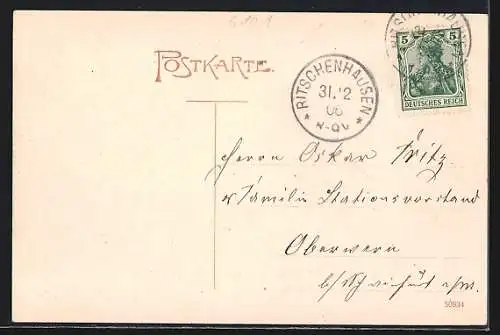 POSTKARTE.
RITSCHENHAUSEN
31.12
06
5 5
DEUTSCHES REICH
Herrn Oskar Fritz
u Familie Stationsvorstand
Oberwern
b/Schweinfurt a/M.
50934